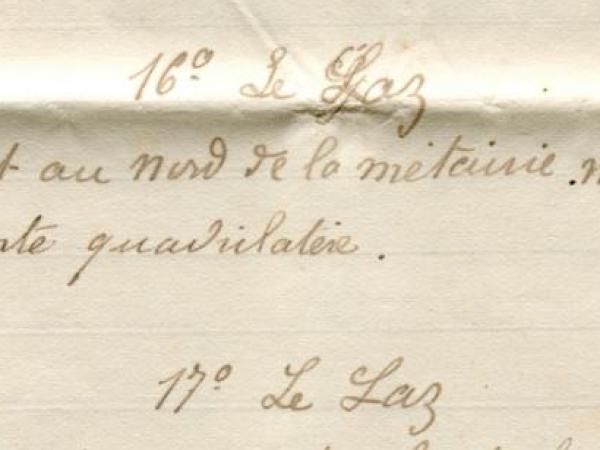 16º Le Laz
t au nord de la métairie.
nte quadrilatère.
17º Le Laz